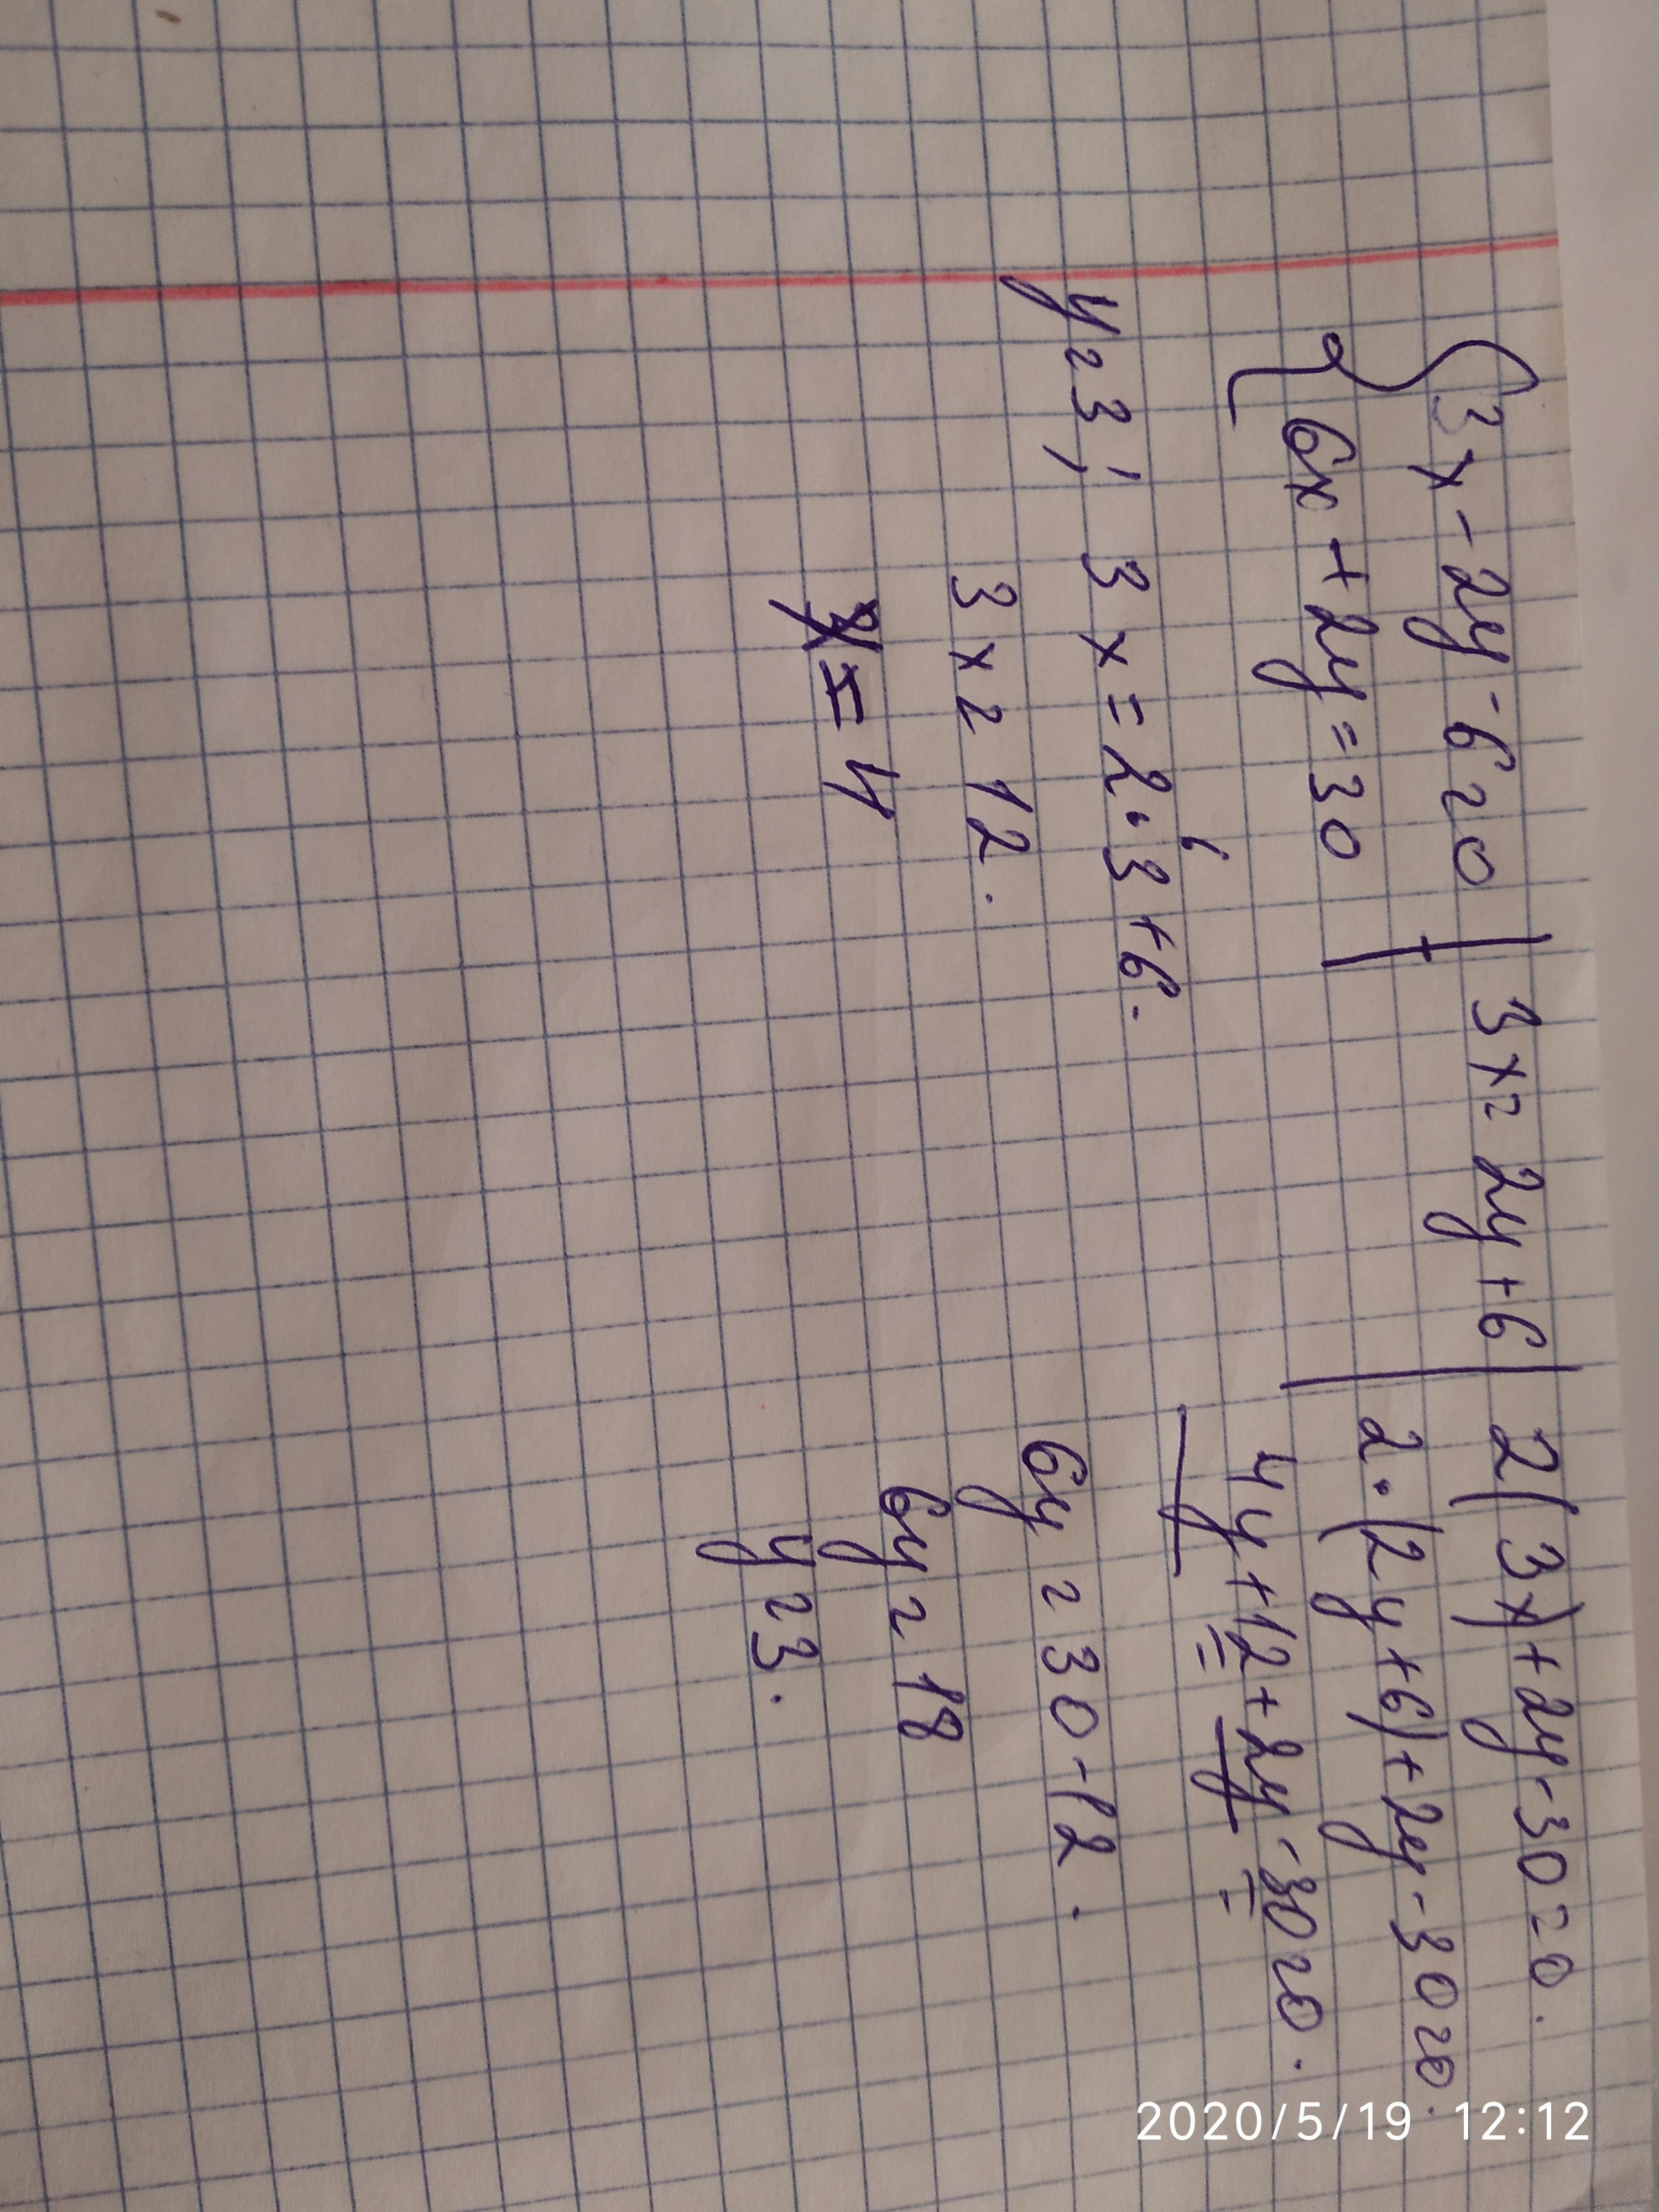 3x - 2y - 6 = 0 | 3x = 2y + 6 | 2(3x) + 2y - 30 = 0.
6x + 2y = 30
2·(2y + 6) + 2y - 30 = 0.
4y + 12 + 2y - 30 = 0.
y = 3; 3x = 2·3 + 6.
6
3x = 12.
x = 4
6y = 30 - 12.
6y = 18
y = 3.
2020/5/19 12:12